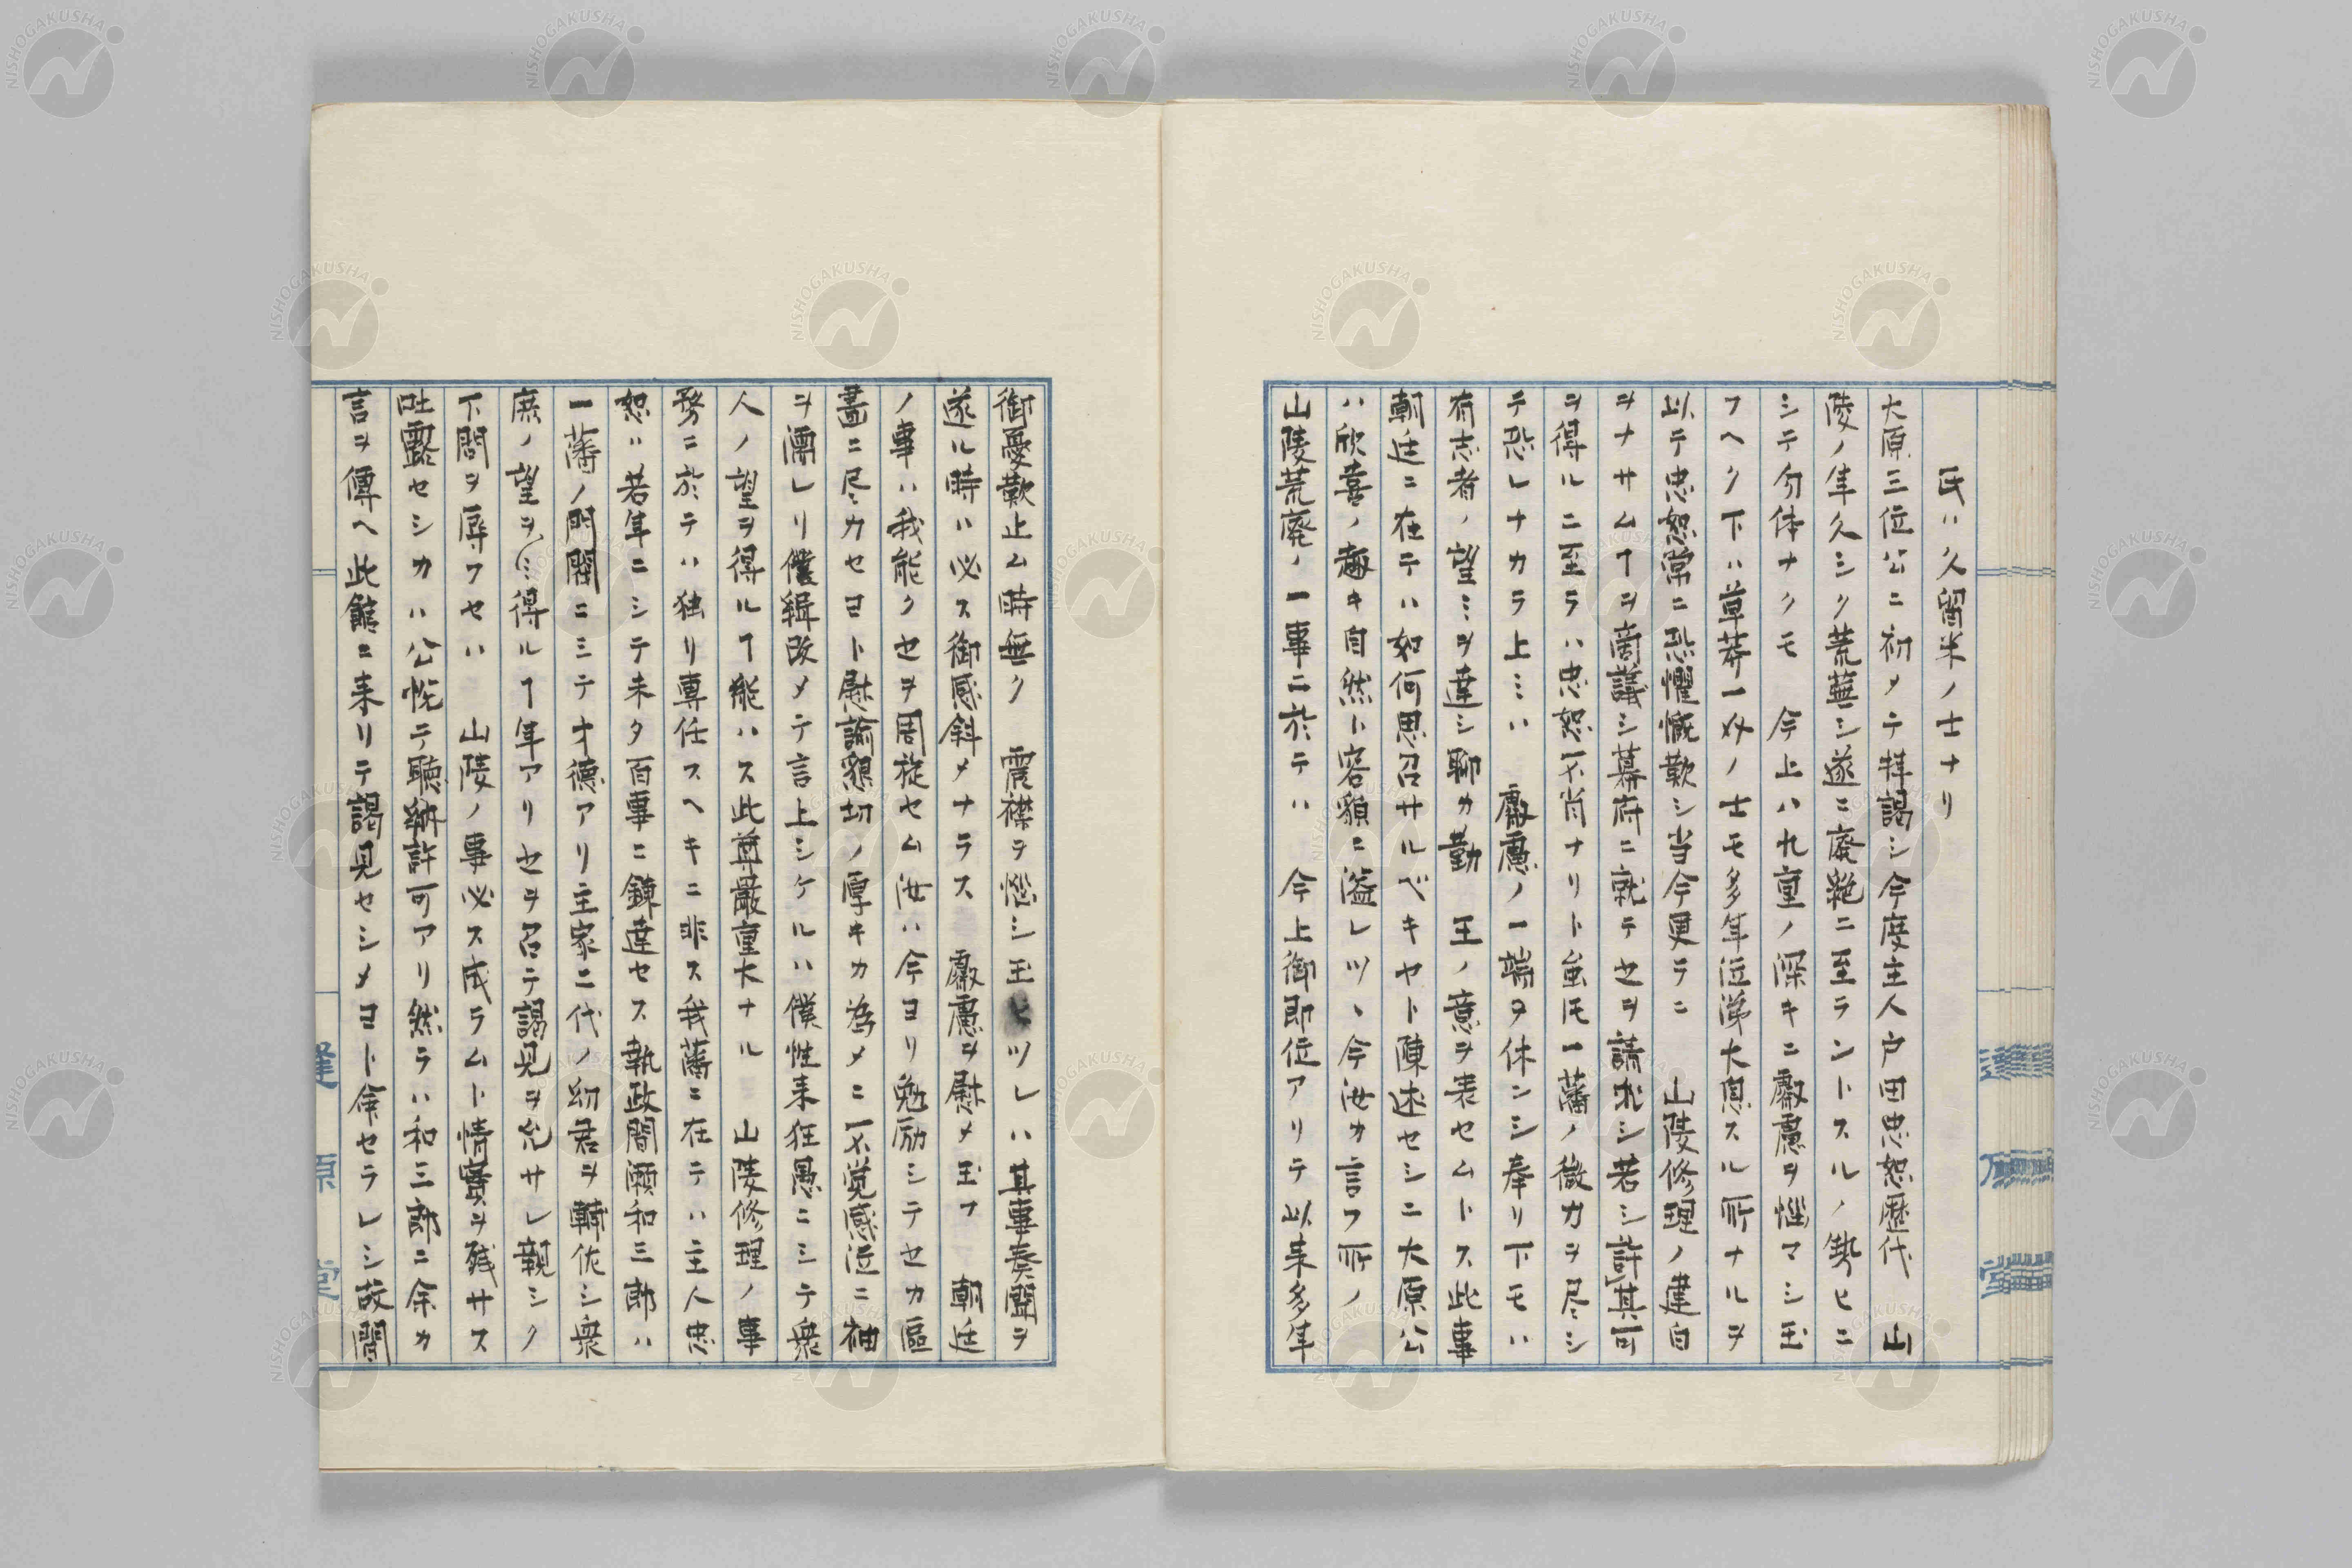 氏ハ久留米ノ士ナリ
大原三位公ニ初メテ拝謁シ今度主人戸田忠恕歴代　山
陵ノ年久シク荒蕪シ遂ニ廃絶ニ至ラントスルノ勢ヒニ
シテ勿体ナクモ　今上ハ九重ノ深キニ叡慮ヲ悩マシ玉
フヘク下ハ草莽一介ノ士モ多年泣涕大息スル所ナルヲ
以テ忠恕常ニ恐懼慨歎シ当今更ラニ　山陵修理ノ建白
ヲナサムヿヲ商議シ幕府ニ就テ之ヲ請求シ若シ許其可
ヲ得ルニ至ラハ忠恕不肖ナリト虽𪜈一藩ノ微力ヲ尽シ
テ恐レナカラ上ミハ　叡慮ノ一端ヲ休ンシ奉リ下モハ
有志者ノ望ミヲ達シ聊カ勤　王ノ意ヲ表セムトス此事
朝廷ニ在テハ如何思召サルベキヤト陳述セシニ大原公
ハ欣喜ノ趣キ自然ト容貌ニ溢レツヽ今汝カ言フ所ノ
山陵荒廃ノ一事ニ於テハ　今上御即位アリテ以来多年
御憂歎止ム時無ク　震襟ヲ悩シ玉ヒツレハ其事奏聞ヲ
遂ル時ハ必ス御感斜メナラス　叡慮ヲ慰メ玉フ　朝廷
ノ事ハ我能ク之ヲ周旋セム汝ハ今ヨリ勉励シテ之カ區
畵ニ尽力セヨト慰諭懇切ノ厚キカ為メニ不覚感泣ニ袖
ヲ濡レリ僕緝改メテ言上シケルハ僕性来狂愚ニシテ衆
人ノ望ヲ得ルヿ能ハス此尊嚴重大ナル　山陵修理ノ事
務ニ於テハ独リ専任スヘキニ非ス我藩ニ在テハ主人忠
恕ハ若年ニシテ未タ百事ニ錬達セス執政間瀬和三郎ハ
一藩ノ門閥ニシテ才徳アリ主家二代ノ幼君ヲ輔佐シ衆
庶ノ望ヲ得ルヿ年アリ之ヲ召テ謁見ヲ允サレ親シク
下問ヲ辱フセハ　山陵ノ事必ス成ラムト情實ヲ残サス
吐露セシカハ公悦テ聴納許可アリ然ラハ和三郎ニ余カ
言ヲ傳ヘ此館ニ来リテ謁見セシメヨト命セラレシ故間